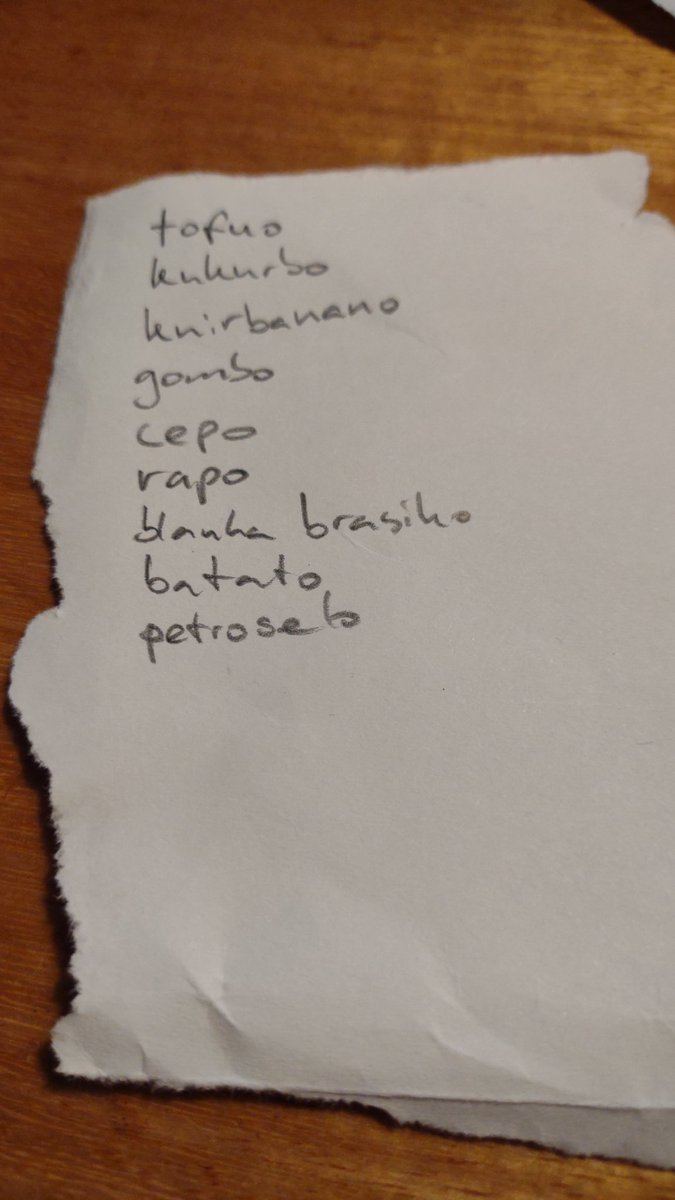 tofuo
kukurbo
kuirbanano
gombo
cepo
rapo
blanka brasiko
batato
petroselo